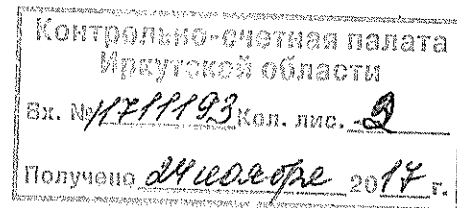 Контрольно-счетная палата
Иркутской области
Вх. № 1711193 Кол. лис. 2
Получено 24 ноября 2017 г.